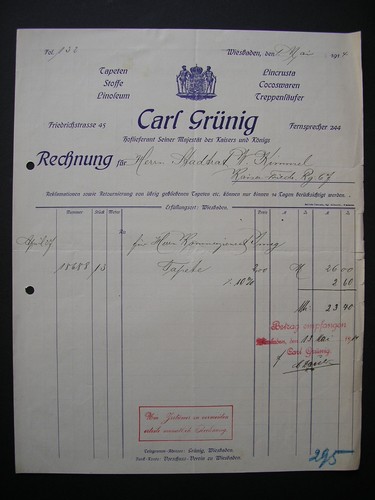 Fol. 132
Wiesbaden, den 1 Mai 1914
Tapeten
Stoffe
Linoleum
Lincrusta
Cocoswaren
Treppenläufer
Carl Grünig
Friedrichstrasse 45
Fernsprecher 244
Hoflieferant Seiner Majestät des Kaisers und Königs
Rechnung für Herrn Stadtrat W. Kimmel
Kaiser Friedr. Rg. 67
Reklamationen sowie Retournierung von übrig gebliebenen Tapeten etc. können nur binnen 14 Tagen berücksichtigt werden.
Erfüllungsort: Wiesbaden.
Nummer Stück Preis
April 27 für Herrn
18688 13 Tapete 200 M 26 00
10% 2 60
Mk. 23 40
Betrag empfangen
Wiesbaden, den 13 Mai 1914
Carl Grünig
Um Irrtümer zu vermeiden
Telegramm-Adresse: Grünig, Wiesbaden.
Bank-Konto: Vorschuss-Verein zu Wiesbaden.
295